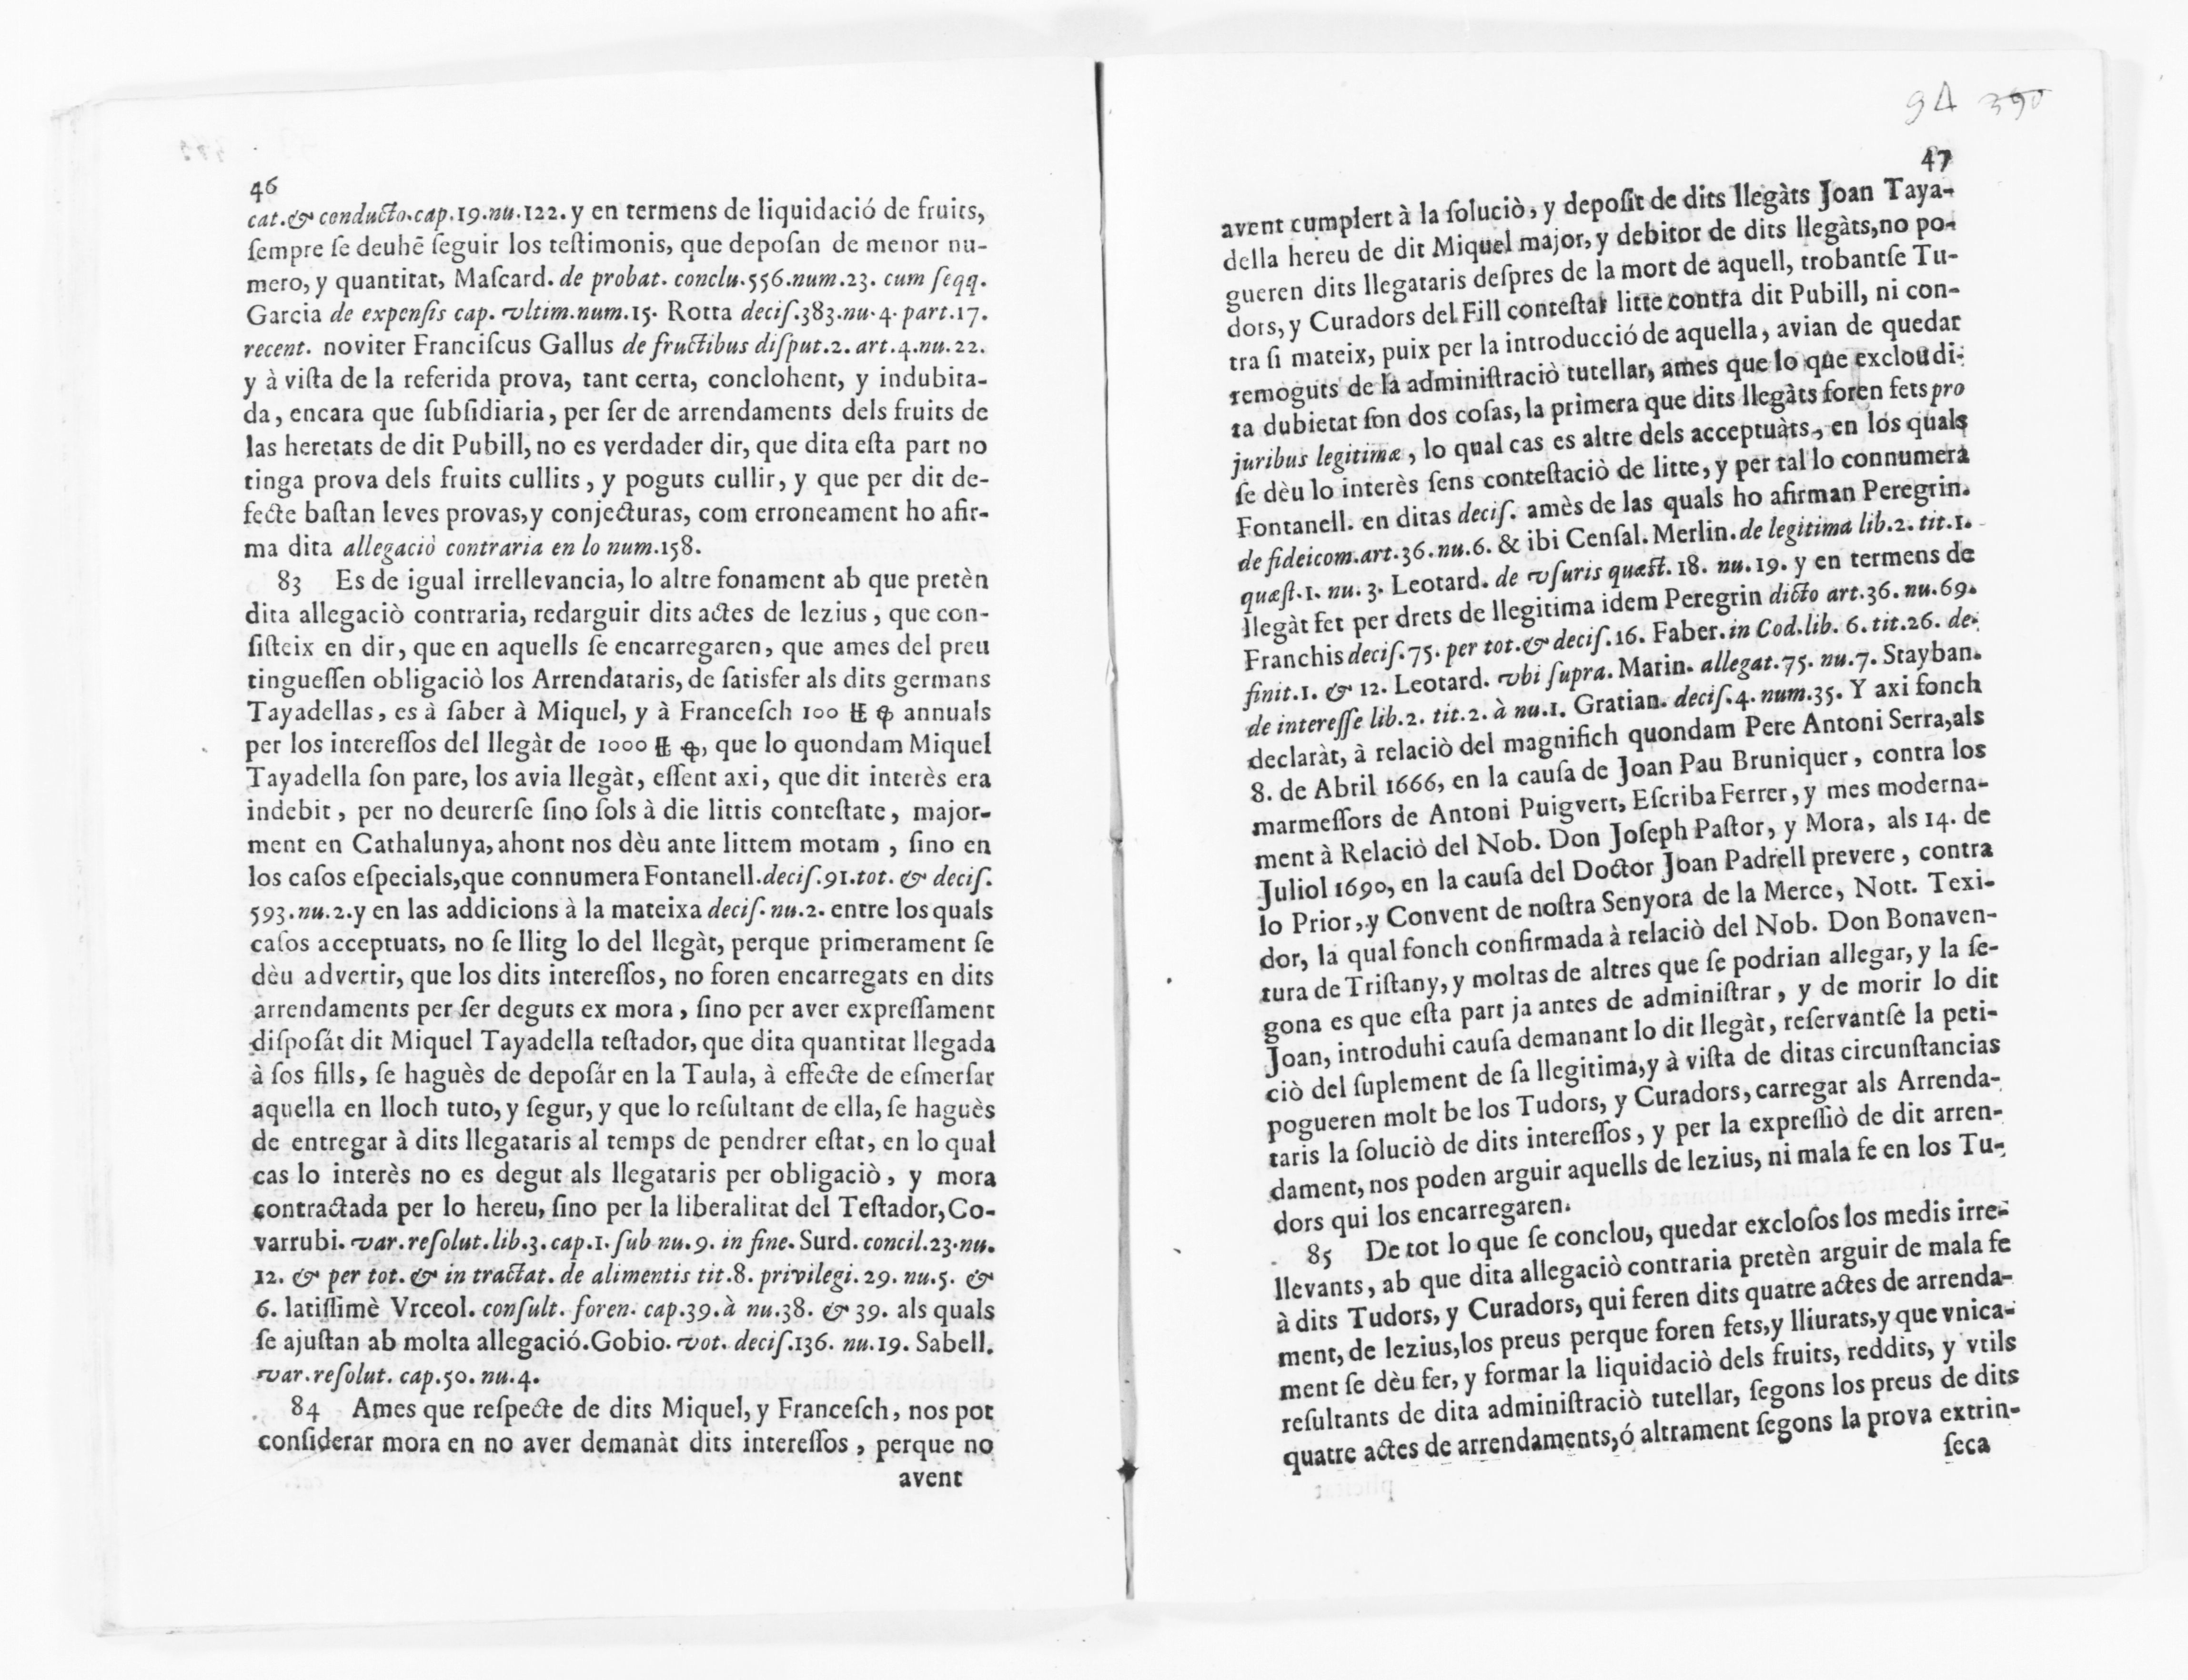 46
cat.& conducto.cap.19.nu.122. y en termens de liquidació de fruits,
ſempre ſe deuhē ſeguir los teſtimonis, que depoſan de menor nu-
mero, y quantitat, Maſcard. de probat. conclu.556.num.23. cum ſeqq.
Garcia de expenſis cap. vltim.num.15. Rotta deciſ.383.nu.4. part.17.
recent. noviter Franciſcus Gallus de fructibus diſput.2. art.4.nu.22.
y à viſta de la referida prova, tant certa, conclohent, y indubita-
da, encara que ſubſidiaria, per ſer de arrendaments dels fruits de
las heretats de dit Pubill, no es verdader dir, que dita eſta part no
tinga prova dels fruits cullits, y poguts cullir, y que per dit de-
fecte baſtan leves provas,y conjecturas, com erroneament ho afir-
ma dita allegaciò contraria en lo num.158.
83 Es de igual irrellevancia, lo altre fonament ab que pretèn
dita allegaciò contraria, redarguir dits actes de lezius, que con-
ſiſteix en dir, que en aquells ſe encarregaren, que ames del preu
tingueſſen obligaciò los Arrendataris, de ſatisfer als dits germans
Tayadellas, es à ſaber à Miquel, y à Franceſch 100 annuals
per los intereſſos del llegàt de 1000 que lo quondam Miquel
Tayadella ſon pare, los avia llegàt, eſſent axi, que dit interès era
indebit, per no deurerſe ſino ſols à die littis conteſtate, major-
ment en Cathalunya, ahont nos dèu ante littem motam, ſino en
los caſos eſpecials,que connumera Fontanell.deciſ.91.tot. & deciſ.
593.nu.2.y en las addicions à la mateixa deciſ.nu.2. entre los quals
caſos acceptuats, no ſe llitg lo del llegàt, perque primerament ſe
dèu advertir, que los dits intereſſos, no foren encarregats en dits
arrendaments per ſer deguts ex mora, ſino per aver expreſſament
diſpoſát dit Miquel Tayadella teſtador, que dita quantitat llegada
à ſos fills, ſe haguès de depoſár en la Taula, à effecte de eſmerſar
aquella en lloch tuto, y ſegur, y que lo reſultant de ella, ſe haguès
de entregar à dits llegataris al temps de pendrer eſtat, en lo qual
cas lo interès no es degut als llegataris per obligaciò, y mora
contractada per lo hereu, ſino per la liberalitat del Teſtador, Co-
varrubi. var.reſolut.lib.3.cap.1.ſub nu.9. in fine. Surd. concil.23.nu.
12. & per tot. & in tractat. de alimentis tit.8. privilegi.29. nu.5. &
6. latiſſimè Vrceol. conſult. foren. cap.39.à nu.38. & 39. als quals
ſe ajuſtan ab molta allegació.Gobio. vot. deciſ.136. nu.19. Sabell.
var.reſolut. cap.50. nu.4.
84 Ames que reſpecte de dits Miquel, y Franceſch, nos pot
conſiderar mora en no aver demanàt dits intereſſos, perque no
avent
94 390
47
avent cumplert à la ſoluciò, y depoſit de dits llegàts Joan Taya-
della hereu de dit Miquel major, y debitor de dits llegàts,no po-
gueren dits llegataris deſpres de la mort de aquell, trobantſe Tu-
dors, y Curadors del Fill conteſtar litte contra dit Pubill, ni con-
tra ſi mateix, puix per la introducció de aquella, avian de quedar
remoguts de la adminiſtraciò tutellar, ames que lo que exclou di-
ta dubietat ſon dos coſas, la primera que dits llegàts foren fets pro
juribus legitimæ, lo qual cas es altre dels acceptuàts, en los quals
ſe dèu lo interès ſens conteſtaciò de litte, y per tal lo connumera
Fontanell. en ditas deciſ. amès de las quals ho afirman Peregrin.
de fideicom.art.36.nu.6. & ibi Cenſal. Merlin.de legitima lib.2. tit.1.
quæſt.1. nu. 3. Leotard. de vſuris quæſt.18. nu.19. y en termens de
llegàt fet per drets de llegitima idem Peregrin dicto art.36. nu.69.
Franchis deciſ.75. per tot.& deciſ.16. Faber.in Cod.lib. 6. tit.26. de-
finit.1. & 12. Leotard. vbi ſupra. Marin. allegat.75. nu.7. Stayban.
de intereſſe lib.2. tit.2. à nu.1. Gratian. deciſ.4. num.35. Y axi fonch
declaràt, à relaciò del magnifich quondam Pere Antoni Serra,als
8. de Abril 1666, en la cauſa de Joan Pau Bruniquer, contra los
marmeſſors de Antoni Puigvert, Eſcriba Ferrer, y mes moderna-
ment à Relaciò del Nob. Don Joſeph Paſtor, y Mora, als 14. de
Juliol 1690, en la cauſa del Doctor Joan Padrell prevere, contra
lo Prior, y Convent de noſtra Senyora de la Merce, Nott. Texi-
dor, la qual fonch confirmada à relaciò del Nob. Don Bonaven-
tura de Triſtany, y moltas de altres que ſe podrian allegar, y la ſe-
gona es que eſta part ja antes de adminiſtrar, y de morir lo dit
Joan, introduhi cauſa demanant lo dit llegàt, reſervantſe la peti-
ciò del ſuplement de ſa llegitima,y à viſta de ditas circunſtancias
pogueren molt be los Tudors, y Curadors, carregar als Arrenda-
taris la ſoluciò de dits intereſſos, y per la expreſſiò de dit arren-
dament, nos poden arguir aquells de lezius, ni mala fe en los Tu-
dors qui los encarregaren.
85 De tot lo que ſe conclou, quedar excloſos los medis irre-
llevants, ab que dita allegaciò contraria pretèn arguir de mala fe
à dits Tudors, y Curadors, qui feren dits quatre actes de arrenda-
ment, de lezius,los preus perque foren fets,y lliurats,y que vnica-
ment ſe dèu fer, y formar la liquidaciò dels fruits, reddits, y vtils
reſultants de dita adminiſtraciò tutellar, ſegons los preus de dits
quatre actes de arrendaments,ó altrament ſegons la prova extrin-
ſeca